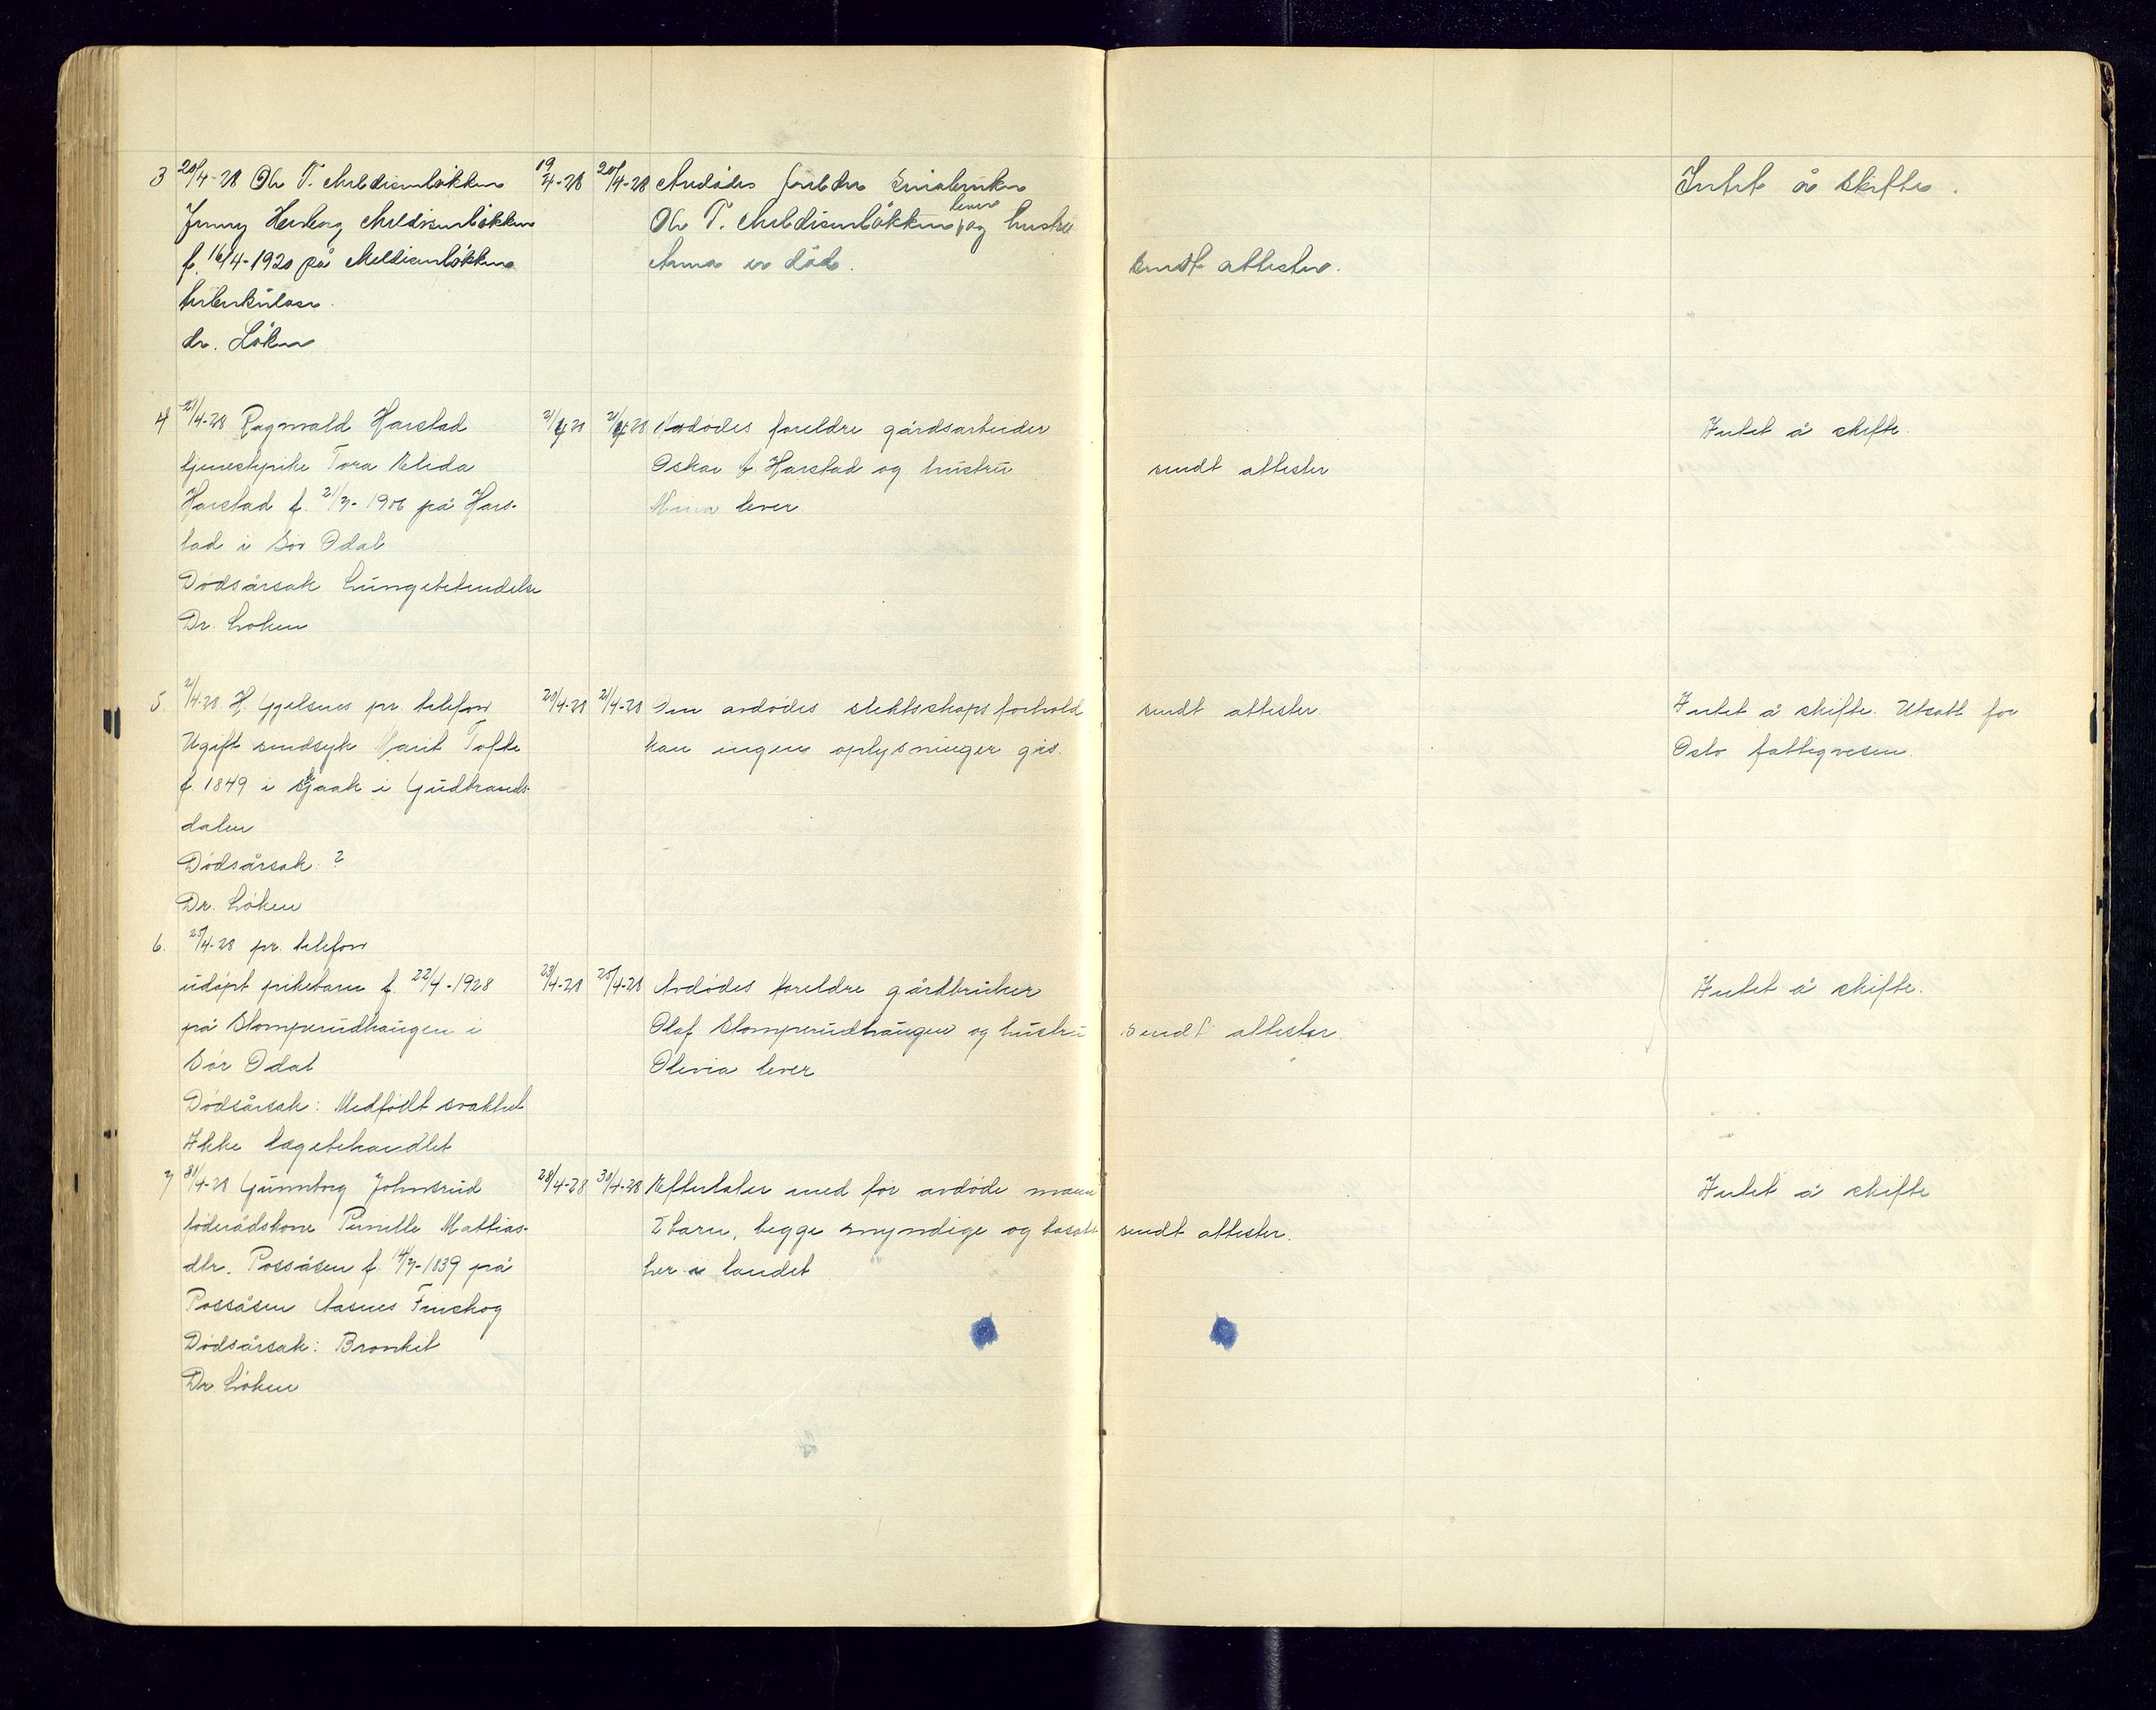 3 20/4-28 Ole T. Meldisenløkken 19/4-28 20/4-28 Avdødes foreldre småbruker Intet å skifte.
Jenny Herborg Meldisenløkken Ole T. Meldisenløkken lever og hustru
f. 16/4-1920 på Meldisenløkken Anna er død. sendt attester.
tuberkulose.
dr. Løken
4 21/4-28 Ragnvald Harstad 21/4 28 21/4 28 Avdødes foreldre gårdsarbeider Intet å skifte.
tjenestepike Tora Elida Oskar Harstad og hustru sendt attester
Harstad f. 21/7-1906 på Hars- lever.
tad i Sør Odal
Dødsårsak Lungebetendelse
Dr. Løken
5. 21/4-28. H. Gjelsnes pr. telefon 20/4-28 21/4-28 Om avdødes slektskapsforhold sendt attester. Intet å skifte. Utsatt for
Ugift sindsyk Marit Tofte kan ingen oplysninger gis. Oslo fattigvesen.
f. 1849 i Skjaak i Gudbrands-
dalen
Dødsårsak: ?
Dr. Løken
6. 25/4-28 pr. telefon
udøpt pikebarn f. 22/4-1928 23/4-28 25/4-28 Avdødes foreldre gårdbruker Intet å skifte.
på Stomperudhaugen i Olaf Stomperudhaugen og hustru sendt attester.
Sør Odal Olivia lever
Dødsårsak: Medfødt svakhet
Ikke lægebehandlet
7 30/4-28 Gunnborg Johnsrud 28/4-28 30/4-28 Efterlater med før avdøde mann Intet å skifte
føderådskone Pernille Mattias- 2 barn, begge myndige og bosatt sendt attester.
dtr. Possåsen f. 14/7-1839 på her i landet
Possåsen Aasnes Finskog
Dødsårsak: Bronkit
Dr. Løken